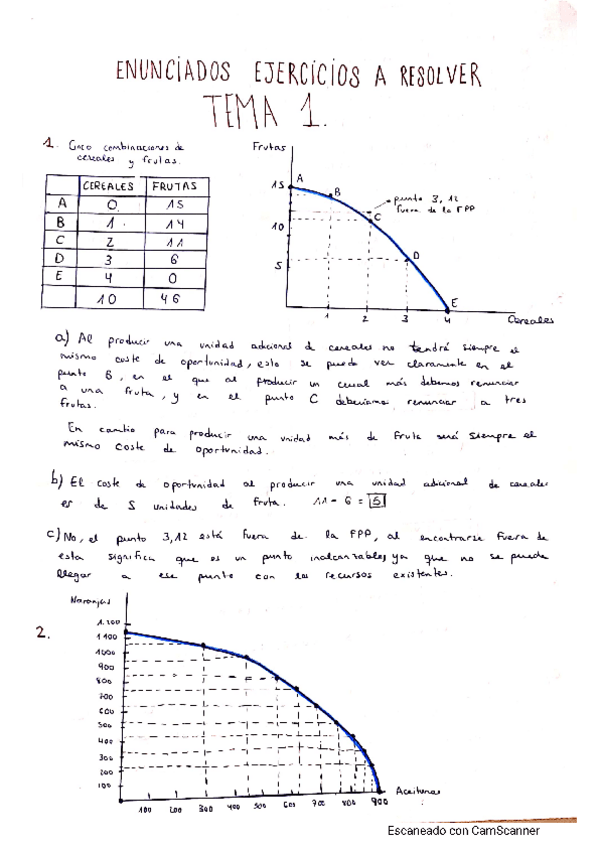 ENUNCIADOS EJERCICIOS A RESOLVER
TEMA 1.
1. Cinco combinaciones de
cereales y frutas.
CEREALES FRUTAS
A 0 15
B 1 14
C 2 11
D 3 6
E 4 0
10 46
Frutas
15
10
5
A
B
C
D
E
punto 3, 12
fuera de la FPP
1 2 3 4
Cereales
a) Al producir una unidad adicional de cereales no tendrá siempre el
mismo coste de oportunidad, esto se puede ver claramente en el
punto B, en el que al producir un cereal más debemos renunciar
a una fruta, y en el punto C deberiamos renunciar a tres
frutas.
En cambio para producir una unidad más de fruta será siempre el
mismo coste de oportunidad.
b) El coste de oportunidad al producir una unidad adicional de cereales
es de 5 unidades de fruta. 11 - 6 = 5
c) No, el punto 3,12 está fuera de la FPP, al encontrarse fuera de
esta significa que es un punto inalcanzable, ya que no se puede
llegar a ese punto con los recursos existentes.
2.
Naranjas
1.200
1100
1000
900
800
700
600
500
400
300
200
100
100 200 300 400 500 600 700 800 900
Aceitunas
Escaneado con CamScanner